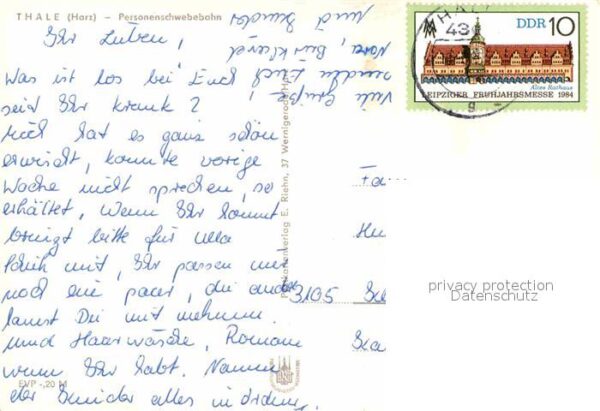 THALE (Harz) – Personenschwebebahn
Ihr Lieben,
Was ist los bei Euch
seid Ihr krank?
Mich hat es ganz schön
erwischt, konnte vorige
Woche nicht sprechen, so
erkältet, Wenn Ihr kommt
bringt bitte für Ulla
mit, Ihr passen nur
noch ein paar, die
kannst Du mit nehmen
und Haarwäsche, Romane
wenn Ihr habt.
der Kinder alles in Ordnung
EVP -,20 M
Viele Grüße
senden Euch
Nora,
und Kinder
E. Riehn, 37 Wernigerode/Harz
THALE
43
g
DDR 10
Altes Rathaus
LEIPZIGER FRÜHJAHRSMESSE 1984
Fa
3105
privacy protection
Datenschutz